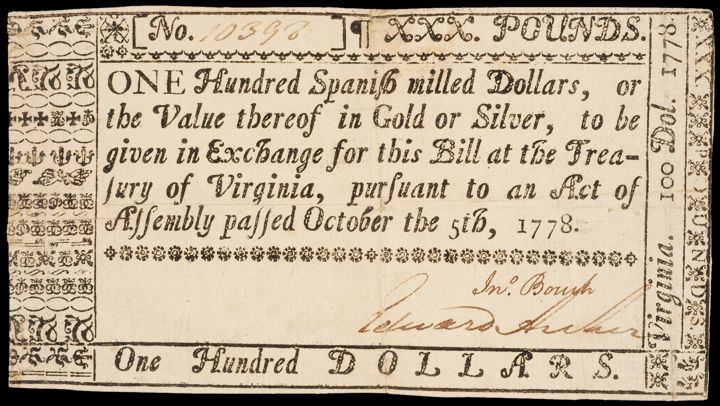 No. 10398 ¶ XXX. POUNDS.
ONE Hundred Spaniſh milled Dollars, or
the Value thereof in Gold or Silver, to be
given in Exchange for this Bill at the Trea-
ſury of Virginia, purſuant to an Act of
Aſſembly paſſed October the 5th, 1778.
Jnº. Boush
Edward Archer
One Hundred DOLLARS.
Virginia. 100 Dol. 1778
XXX POUNDS